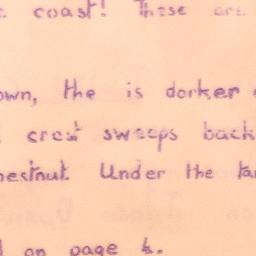 coast! These are
own, the is darker
crest sweeps back
hestnut. Under the ta
on page 4.